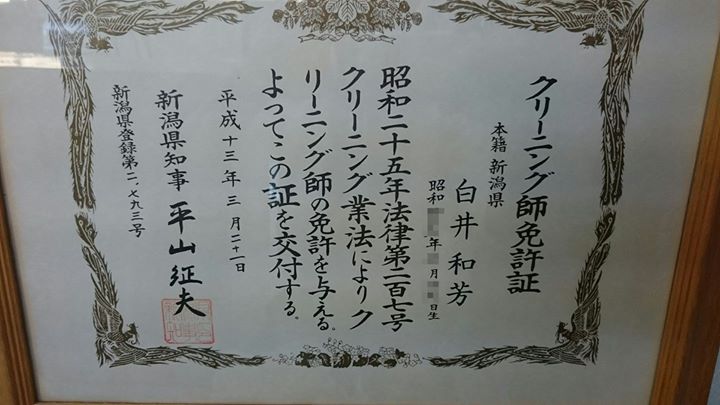 クリーニング師免許証
本籍 新潟県
白井和芳
昭和 年 月 日生
昭和二十五年法律第二百七号
クリーニング業法によりク
リーニング師の免許を与える。
よってこの証を交付する。
平成十三年三月二十一日
新潟県知事 平山征夫
新潟県登録第二、七九三号